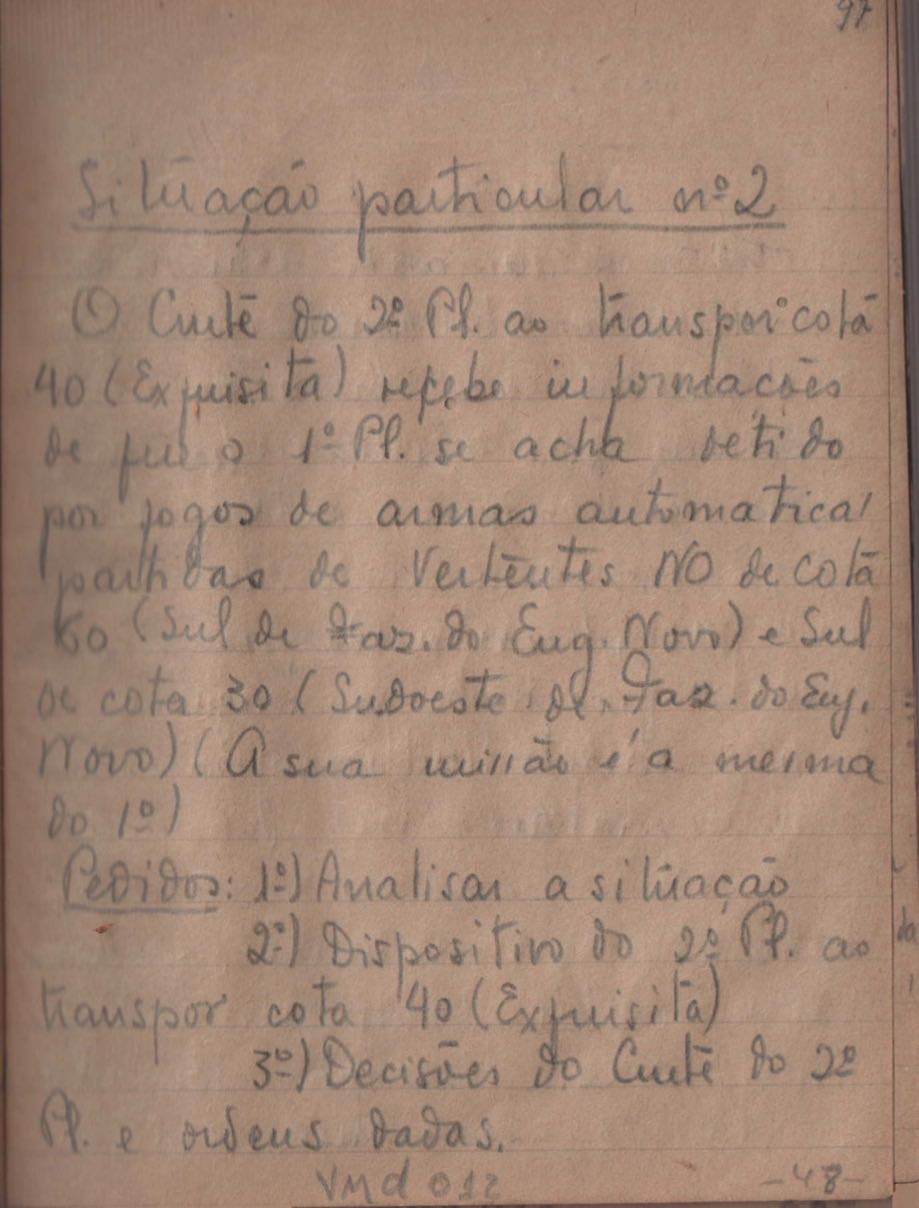 97
Situação particular nº 2
O Cmte do 2º Pl. ao transpor cota
40 (Exquisita) recebe informações
de que o 1º Pl. se acha detido
por fogos de armas automaticas
partidas de Vertentes NO de cota
60 (Sul de Faz. do Eng. Novo) e Sul
de cota 30 (Sudoeste de Faz. do Eng.
Novo) (A sua missão é a mesma
do 1º)
Pedidos: 1º) Analisar a situação
2º) Dispositivo do 2º Pl. ao
transpor cota 40 (Exquisita)
3º) Decisões do Cmte do 2º
Pl. e ordens dadas.
VMd 012 -48-